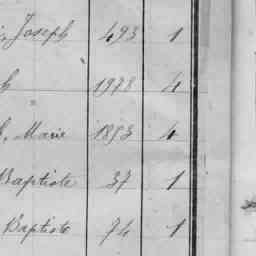 , Joseph 493 1
h 1978 4
h, Marie 1853 4
Baptiste 37 1
Baptiste 74 1